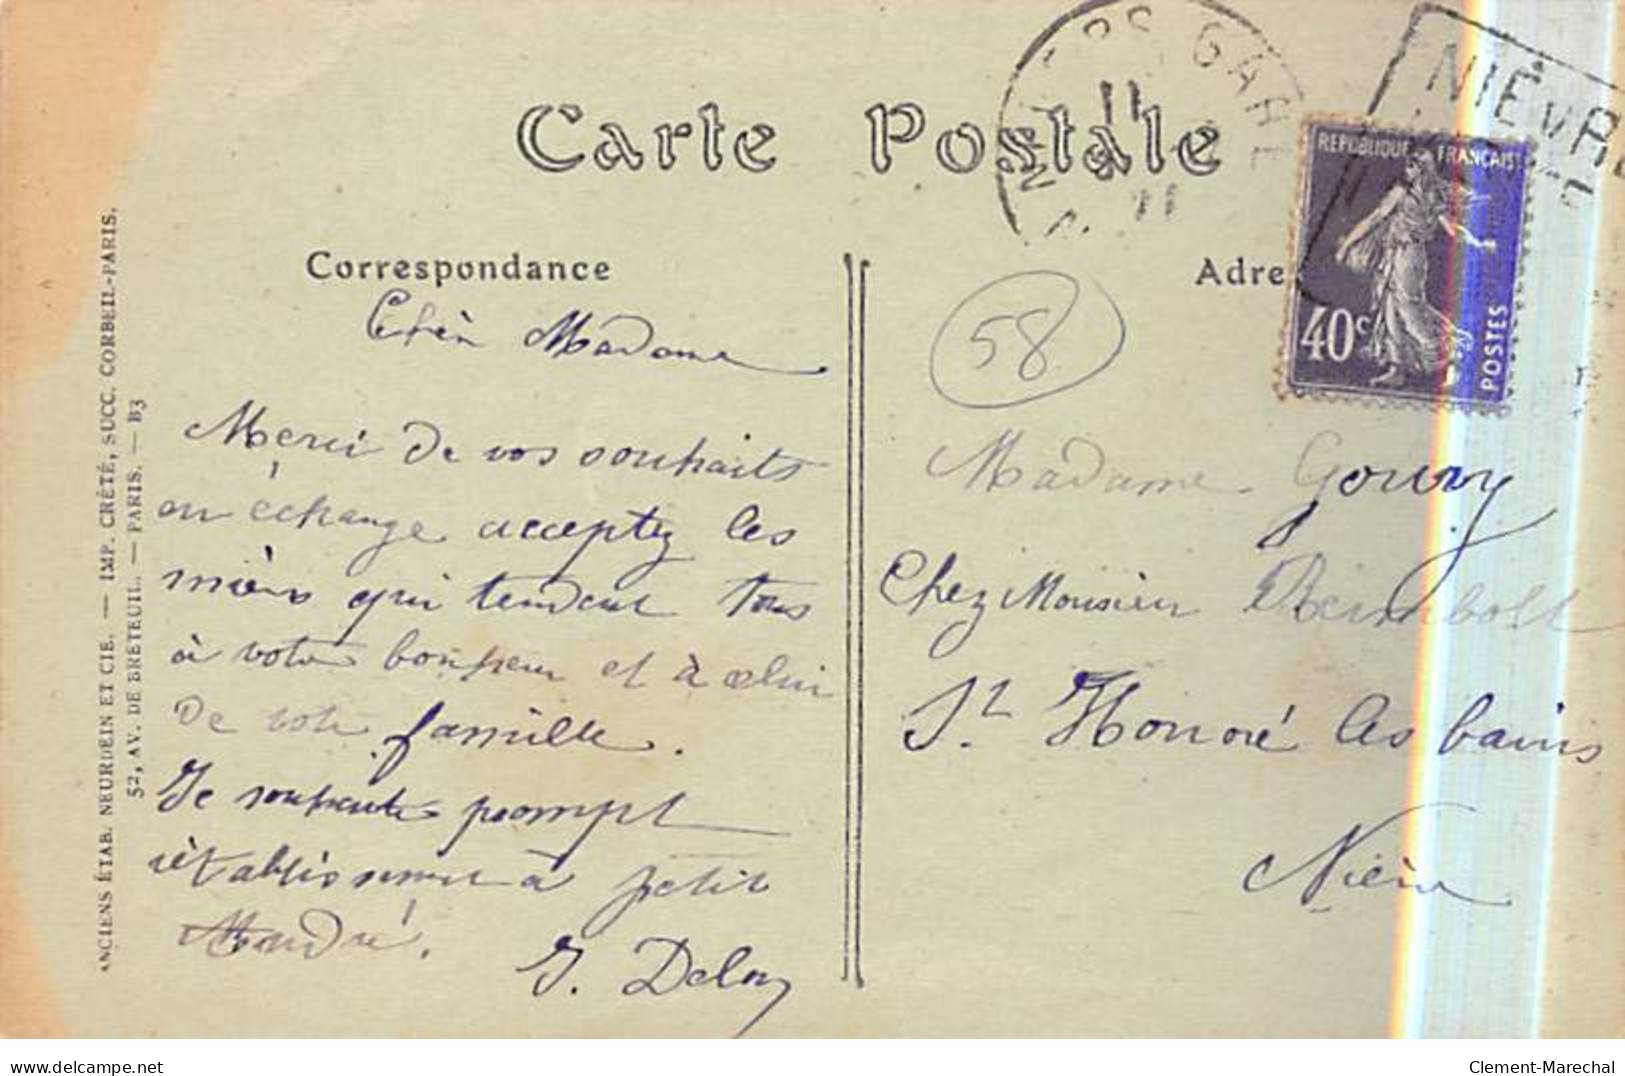 Carte Postale
NEVERS GARE
NIÈVRE
REPUBLIQUE FRANÇAISE
40c
POSTES
ANCIENS ÉTAB. NEURDEIN ET CIE. — IMP. CRÉTÉ, SUCC. CORBEIL-PARIS.
52, AV. DE BRETEUIL. — PARIS. — B3
Correspondance
Chère Madame
Merci de vos souhaits
en échange acceptez les
miens qui tendent tous
à votre bonheur et à celui
de votre famille.
Je souhaite prompt
rétablissement à petit
André.
J. Deloy
Adre
58
Madame Gouvy
Chez Monsieur Reimbolt
St Honoré les bains
Nièvre
delcampe.net
Clement-Marechal